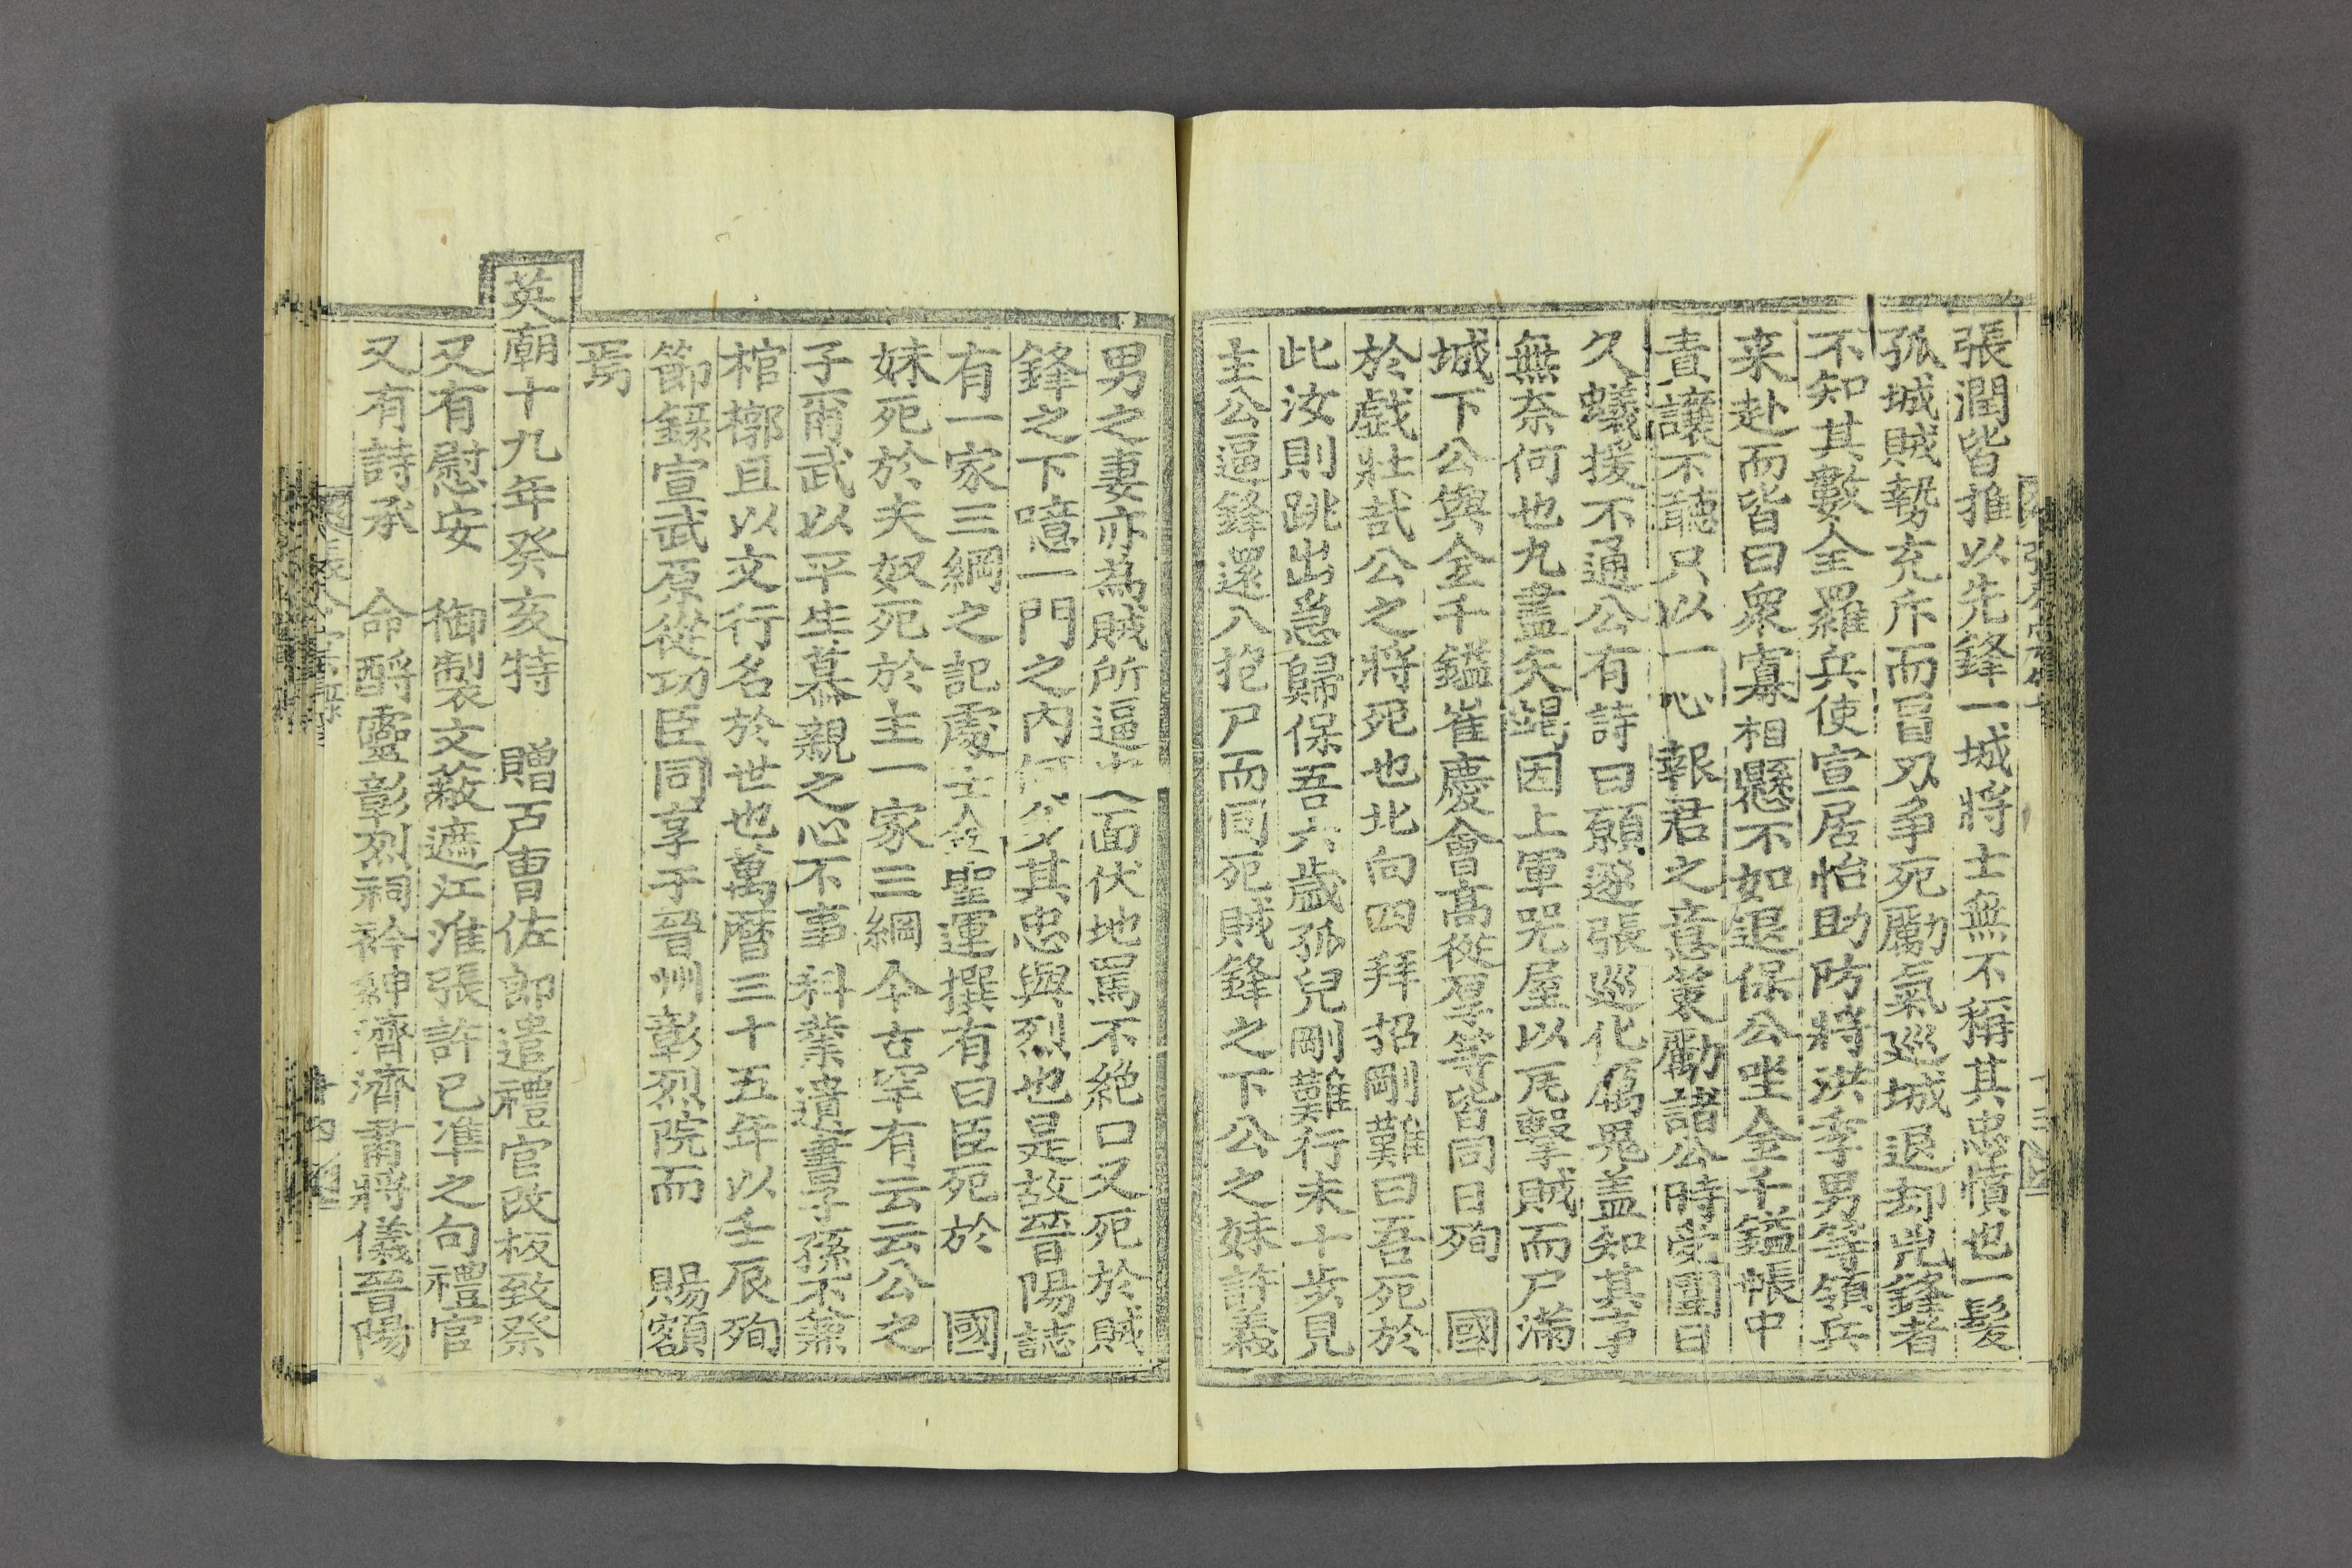 張潤皆推以先鋒一城將士無不稱其忠憤也一髮
孤城賊勢充斥而冒刃爭死勵氣巡城退却兇鋒者
不知其數全羅兵使宣居怡助防將洪季男等領兵
来赴而皆曰衆寡相懸不如退保公坐金千鎰帳中
責讓不聽只以一心報君之意策勵諸公時受圍日
久蟻援不通公有詩曰願逐張巡化厲鬼盖知其事
無奈何也九盡矢竭因上軍咒屋以瓦擊賊而尸滿
城下公與金千鎰崔慶會高從厚等皆同日殉 國
於戲壯哉公之將死也北向四拜招剛難曰吾死於
此汝則跳出急歸保吾六歲孤兒剛難行未十步見
主公逼鋒還入抱尸而同死賊鋒之下公之妹許義
男之妻亦為賊所逼面伏地罵不絶口又死於賊
鋒之下噫一門之内何多其忠與烈也是故晉陽誌
有一家三綱之記處士金聖運撰有曰臣死於 國
妹死於夫奴死於主一家三綱今古罕有云云公之
子爾武以平生慕親之心不事科業遺書子孫不兼
棺槨且以文行名於世也萬曆三十五年以壬辰殉
節錄宣武原從功臣同享于晉州彰烈院而 賜額
焉
英廟十九年癸亥特 贈戸曹佐郎遣禮官改板致祭
又有慰安 御製文蔽遮江淮張許已準之句禮官
又有詩承 命酹靈彰烈祠衿紳濟濟肅將儀晉陽